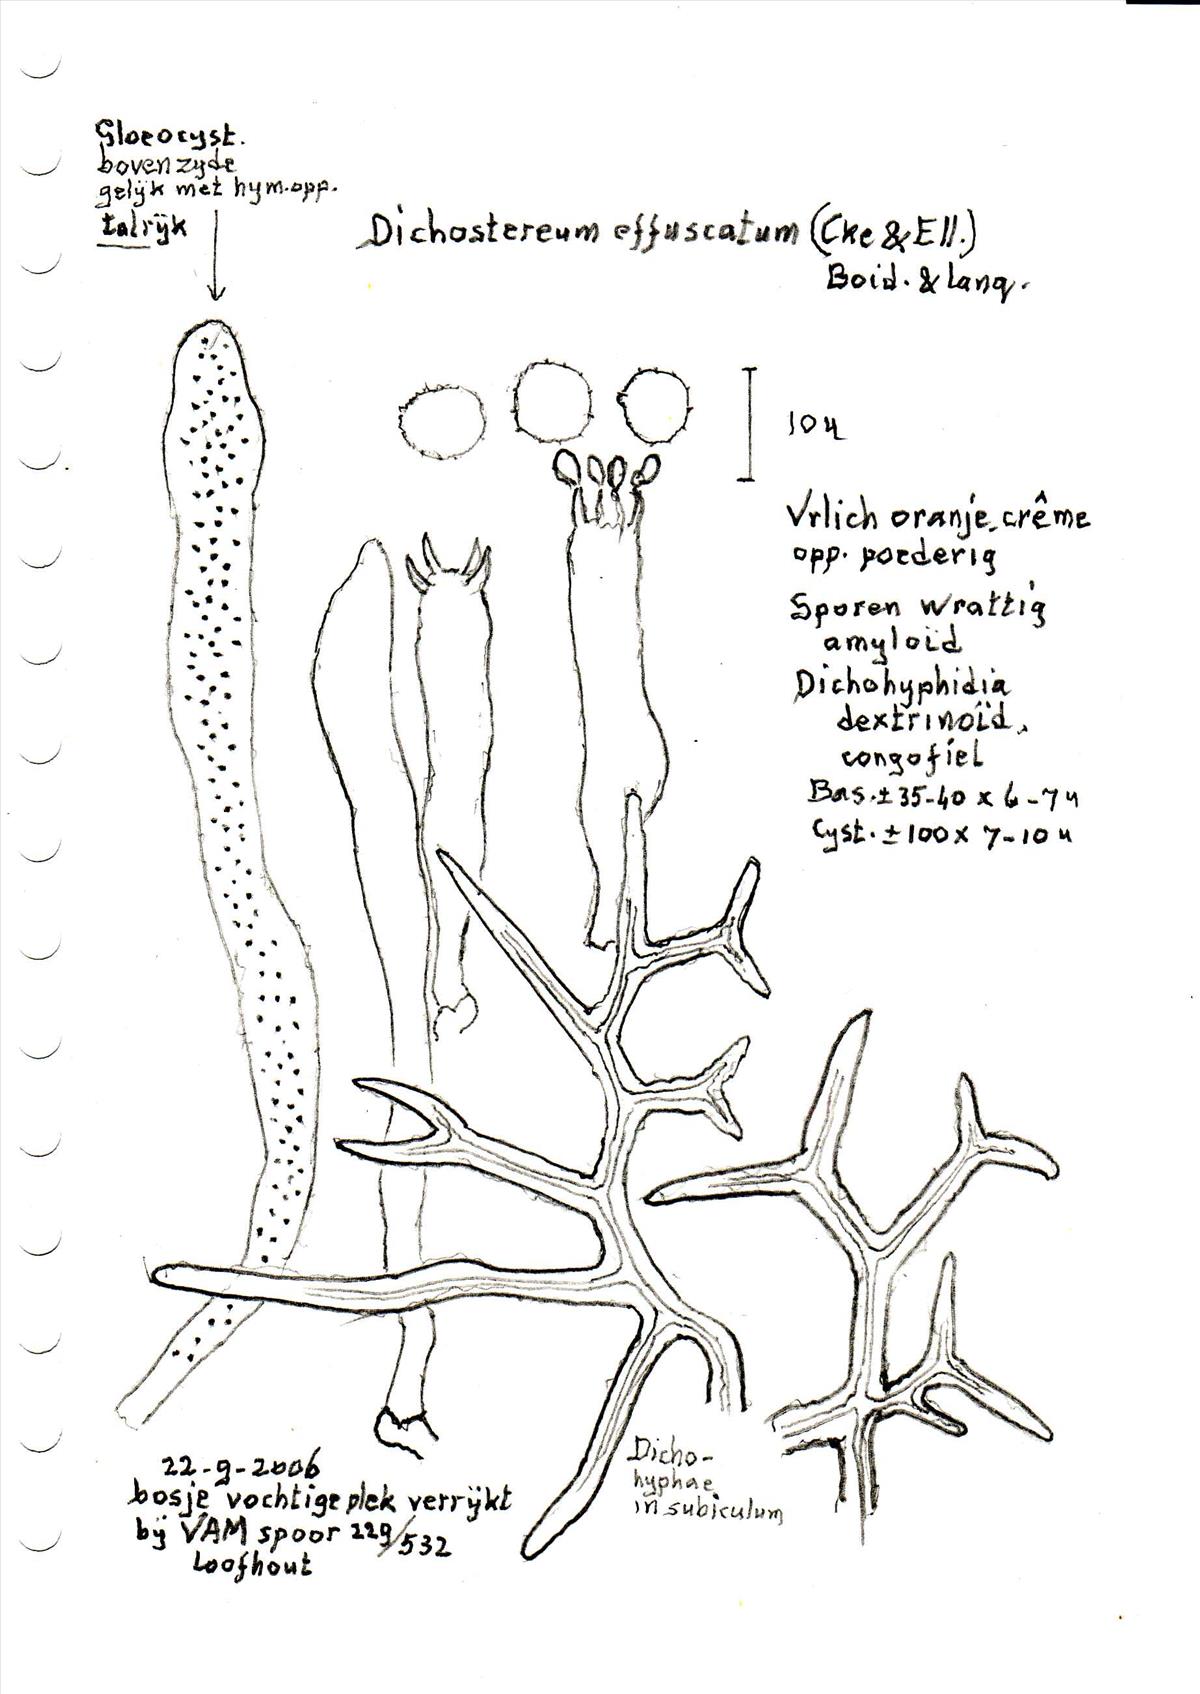 Gloeocyst.
bovenzyde
gelijk met hym.opp.
talrijk
Dichostereum effuscatum (Cke & Ell.)
Boid. & lanq.
10 u
Vrlich oranje, crême
opp. poederig
Sporen wrattig
amyloïd
Dichohyphidia
dextrinoïd,
congofiel
Bas. ± 35-40 x 6-7 u
Cyst. ± 100 x 7-10 u
Dicho-
hyphae
in subiculum
22-9-2006
bosje vochtige plek verrijkt
bij VAM spoor 229/532
Loofhout